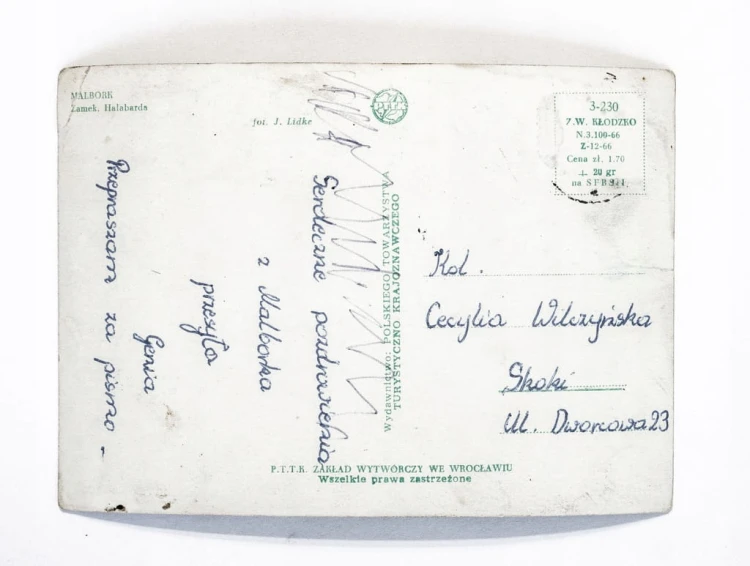 MALBORK
Zamek. Halabarda
fot. J. Lidke
PTTK
3-230
Z.W. KŁODZKO
N.3.100-66
Z-12-66
Cena zł. 1.70
+ 20 gr
na SFBSiI
Serdeczne pozdrowienia
z Malborka
przesyła
Genia
Przepraszam za pismo -
Wydawnictwo: POLSKIEGO TOWARZYSTWA
TURYSTYCZNO KRAJOZNAWCZEGO
Kol.
Cecylia Wilczyńska
Skoki
Ul. Dworcowa 23
P.T.T.K. ZAKŁAD WYTWÓRCZY WE WROCŁAWIU
Wszelkie prawa zastrzeżone